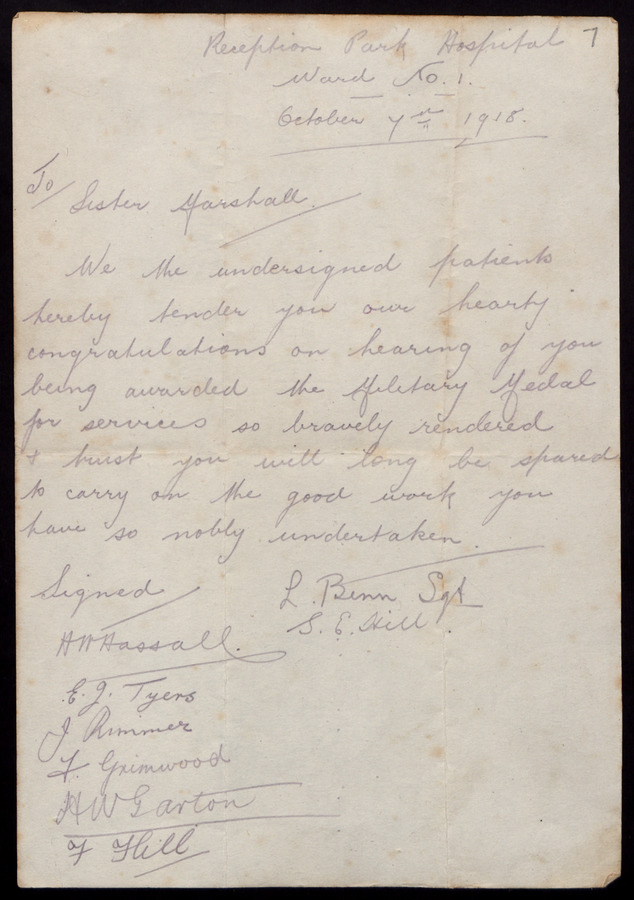 Reception Park Hospital 7
Ward No. 1.
October 7th 1918.
To
Sister Marshall.
We the undersigned patients
hereby tender you our hearty
congratulations on hearing of you
being awarded the Military Medal
for services so bravely rendered
& trust you will long be spared
to carry on the good work you
have so nobly undertaken.
Signed
L. Benn Sgt
S. E. Hill.
H W Hassall.
E. J. Tyers
J Rimmer
F. Grimwood
H W Garton
F Hill